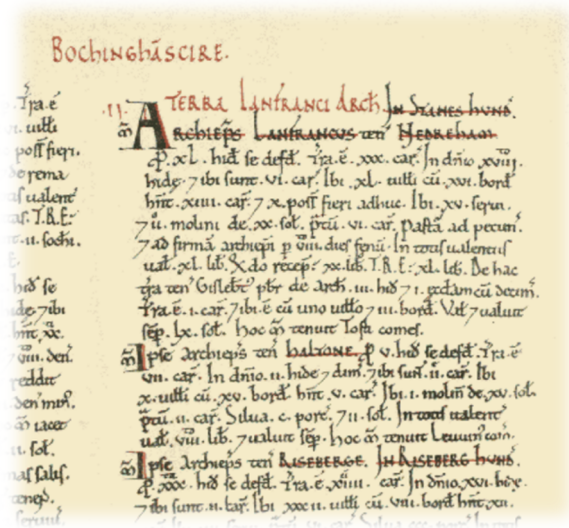 BOCHINGHĀSCIRE.
Tra.ē
uilli
poss fieri.
de rema
ualent
T.R.E.
.ii. sochi.
hid se
⁊ ibi
hñt .xx.
.viii. deñ.
reddit
den min.
m̃ iacet
.ii. sol.
.ii. TERRA Lanfranci Arch̃. IN STANES HUND.
m̃ ARCHIEP̃S LANFRANCUS teñ HEDREHAM
ꝑ .xl. hid se defd̃. Tra.ē .xxx. car̃. In dñio .xviii.
hide. ⁊ ibi sunt .vi. car̃. Ibi .xl. uilli cū .xvi. bord̃
hñt .xiiii. car̃. ⁊ x. poss̃ fieri adhuc. Ibi .xv. serui.
⁊ ii. molini de .xx. sol. p̃tū .vi. car̃. Pastã ad pecuñ.
⁊ ad firmã archiep̃i ꝑ viii. dies fenū. In totis ualentijs
ual̃ .xl. lib̃. Qdo recep̃: xx. lib̃. T.R.E: xl. lib̃. De hac
t̃ra teñ Gislebt̃ pbr̃ de arch̃ .iii. hid̃ ⁊ i. æcclam cū decim̃.
T̃ra.ē .i. car̃. ⁊ ibi.ē cū uno uillo ⁊ iii. bord̃. Val̃ ⁊ ualuit
sẽp .lx. sol. Hoc m̃ tenuit Tosti comes.
m̃ Ipse archiep̃s teñ HALTONE. ꝑ v. hid̃ se defd̃. T̃ra.ē
vii. car̃. In dñio .ii. hide ⁊ dim̃. ⁊ ibi suñt .ii. car̃. Ibi
x. uilli cū .xv. bord̃ hñt .v. car̃. Ibi .i. molin̄ de .xv. sol.
p̃tū .ii. car̃. Silua .c. porc̃. ⁊ ii. sol. In totis ualent̃
ual̃ .viii. lib̃. ⁊ ualuit sẽp. Hoc m̃ tenuit Leuuin̄ com̃.
m̃ Ipse Archiep̃s teñ RISEBERGE. IN RISEBERG HUND.
ꝑ .xxx. hid̃ se defd̃. T̃ra.ē .xxiiii. car̃. In dñio .xvi. hidæ.
⁊ ibi sunt .ii. car̃. Ibi .xxxii. uilli cū .viii. bord̃ hñt .xii.